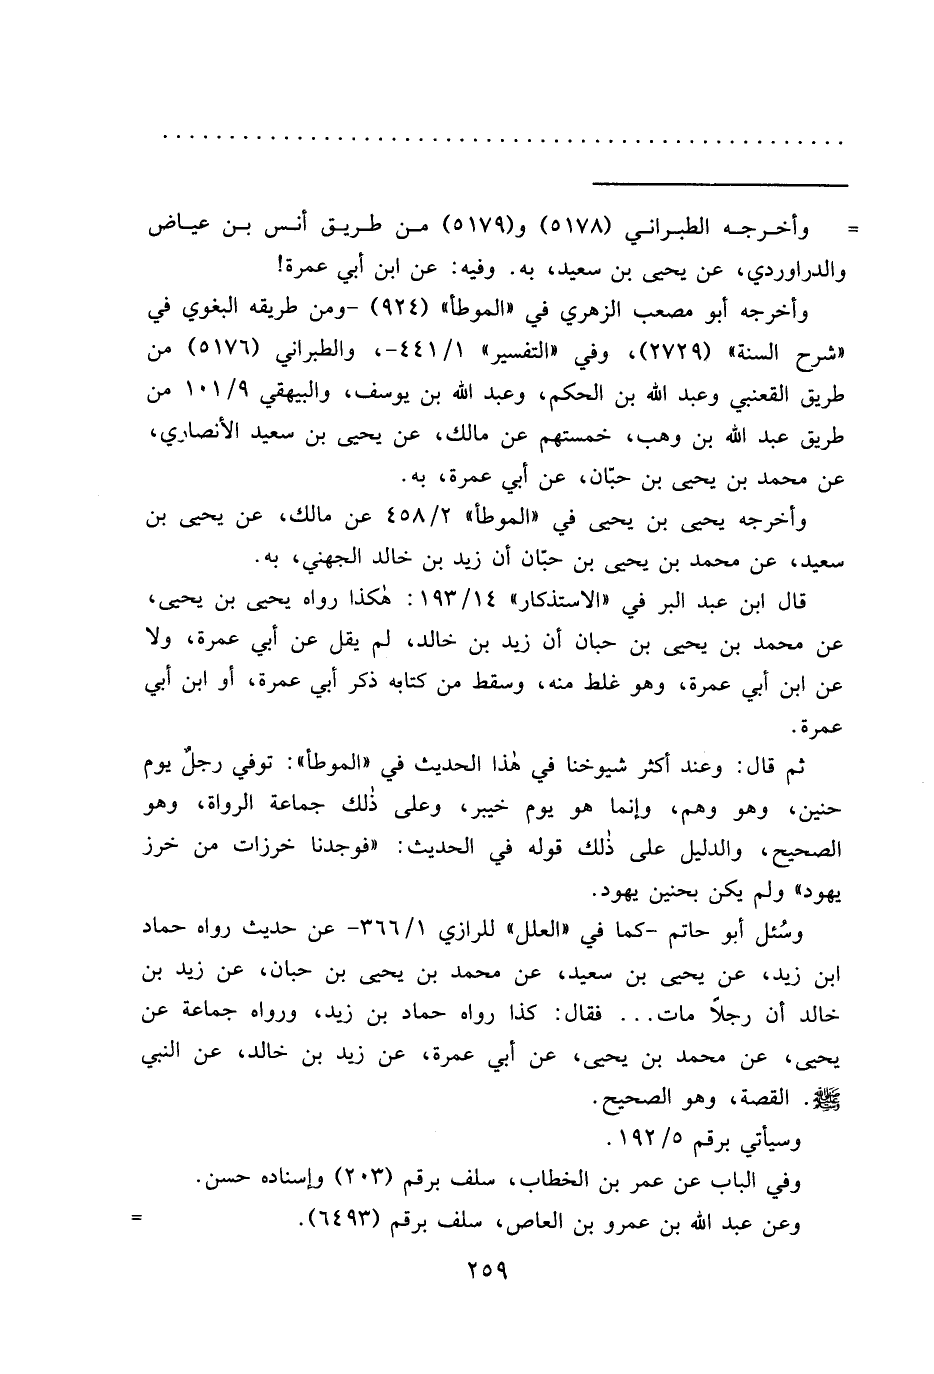 . . . . . . . . . . . . . . . . . . . . . . . . . . . . . . . . . . . . . . . . . . . . . . . . . . .
= وأخرجه الطبراني (٥١٧٨) و(٥١٧٩) من طريق أنس بن عياض
والدراوردي، عن يحيى بن سعيد، به. وفيه: عن ابن أبي عمرة!
وأخرجه أبو مصعب الزهري في «الموطأ» (٩٢٤) -ومن طريقه البغوي في
«شرح السنة» (٢٧٢٩)، وفي «التفسير» ٤٤١/١-، والطبراني (٥١٧٦) من
طريق القعنبي وعبد الله بن الحكم، وعبد الله بن يوسف، والبيهقي ١٠١/٩ من
طريق عبد الله بن وهب، خمستهم عن مالك، عن يحيى بن سعيد الأنصاري،
عن محمد بن يحيى بن حبّان، عن أبي عمرة، به.
وأخرجه يحيى بن يحيى في «الموطأ» ٤٥٨/٢ عن مالك، عن يحيى بن
سعيد، عن محمد بن يحيى بن حبّان أن زيد بن خالد الجهني، به.
قال ابن عبد البر في «الاستذكار» ١٩٣/١٤: هٰكذا رواه يحيى بن يحيى،
عن محمد بن يحيى بن حبان أن زيد بن خالد، لم يقل عن أبي عمرة، ولا
عن ابن أبي عمرة، وهو غلط منه، وسقط من كتابه ذكر أبي عمرة، أو ابن أبي
عمرة.
ثم قال: وعند أكثر شيوخنا في هٰذا الحديث في «الموطأ»: توفي رجلٌ يوم
حنين، وهو وهم، وإنما هو يوم خيبر، وعلى ذٰلك جماعة الرواة، وهو
الصحيح، والدليل على ذٰلك قوله في الحديث: «فوجدنا خرزات من خرز
يهود» ولم يكن بحنين يهود.
وسُئل أبو حاتم -كما في «العلل» للرازي ٣٦٦/١- عن حديث رواه حماد
ابن زيد، عن يحيى بن سعيد، عن محمد بن يحيى بن حبان، عن زيد بن
خالد أن رجلاً مات... فقال: كذا رواه حماد بن زيد، ورواه جماعة عن
يحيى، عن محمد بن يحيى، عن أبي عمرة، عن زيد بن خالد، عن النبي
ﷺ. القصة، وهو الصحيح.
وسيأتي برقم ١٩٢/٥.
وفي الباب عن عمر بن الخطاب، سلف برقم (٢٠٣) وإسناده حسن.
وعن عبد الله بن عمرو بن العاص، سلف برقم (٦٤٩٣). =
٢٥٩